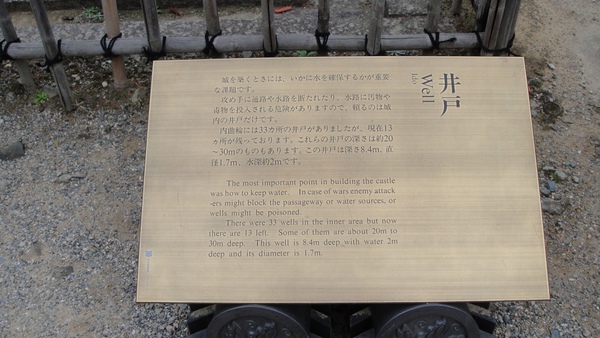 井戸
Well
Ido
城を築くときには、いかに水を確保するかが重要
な課題です。
攻め手に通路や水路を断たれたり、水路に汚物や
毒物を投入される危険がありますので、頼るのは城
内の井戸だけです。
内曲輪には33カ所の井戸がありましたが、現在13
ヵ所が残っております。これらの井戸の深さは約20
〜30mのものもあります。この井戸は深さ8.4m、直
径1.7m、水深約2mです。
The most important point in building the castle
was how to keep water. In case of wars enemy attack
-ers might block the passageway or water sources, or
wells might be poisoned.
There were 33 wells in the inner area but now
there are 13 left. Some of them are about 20m to
30m deep. This well is 8.4m deep with water 2m
deep and its diameter is 1.7m